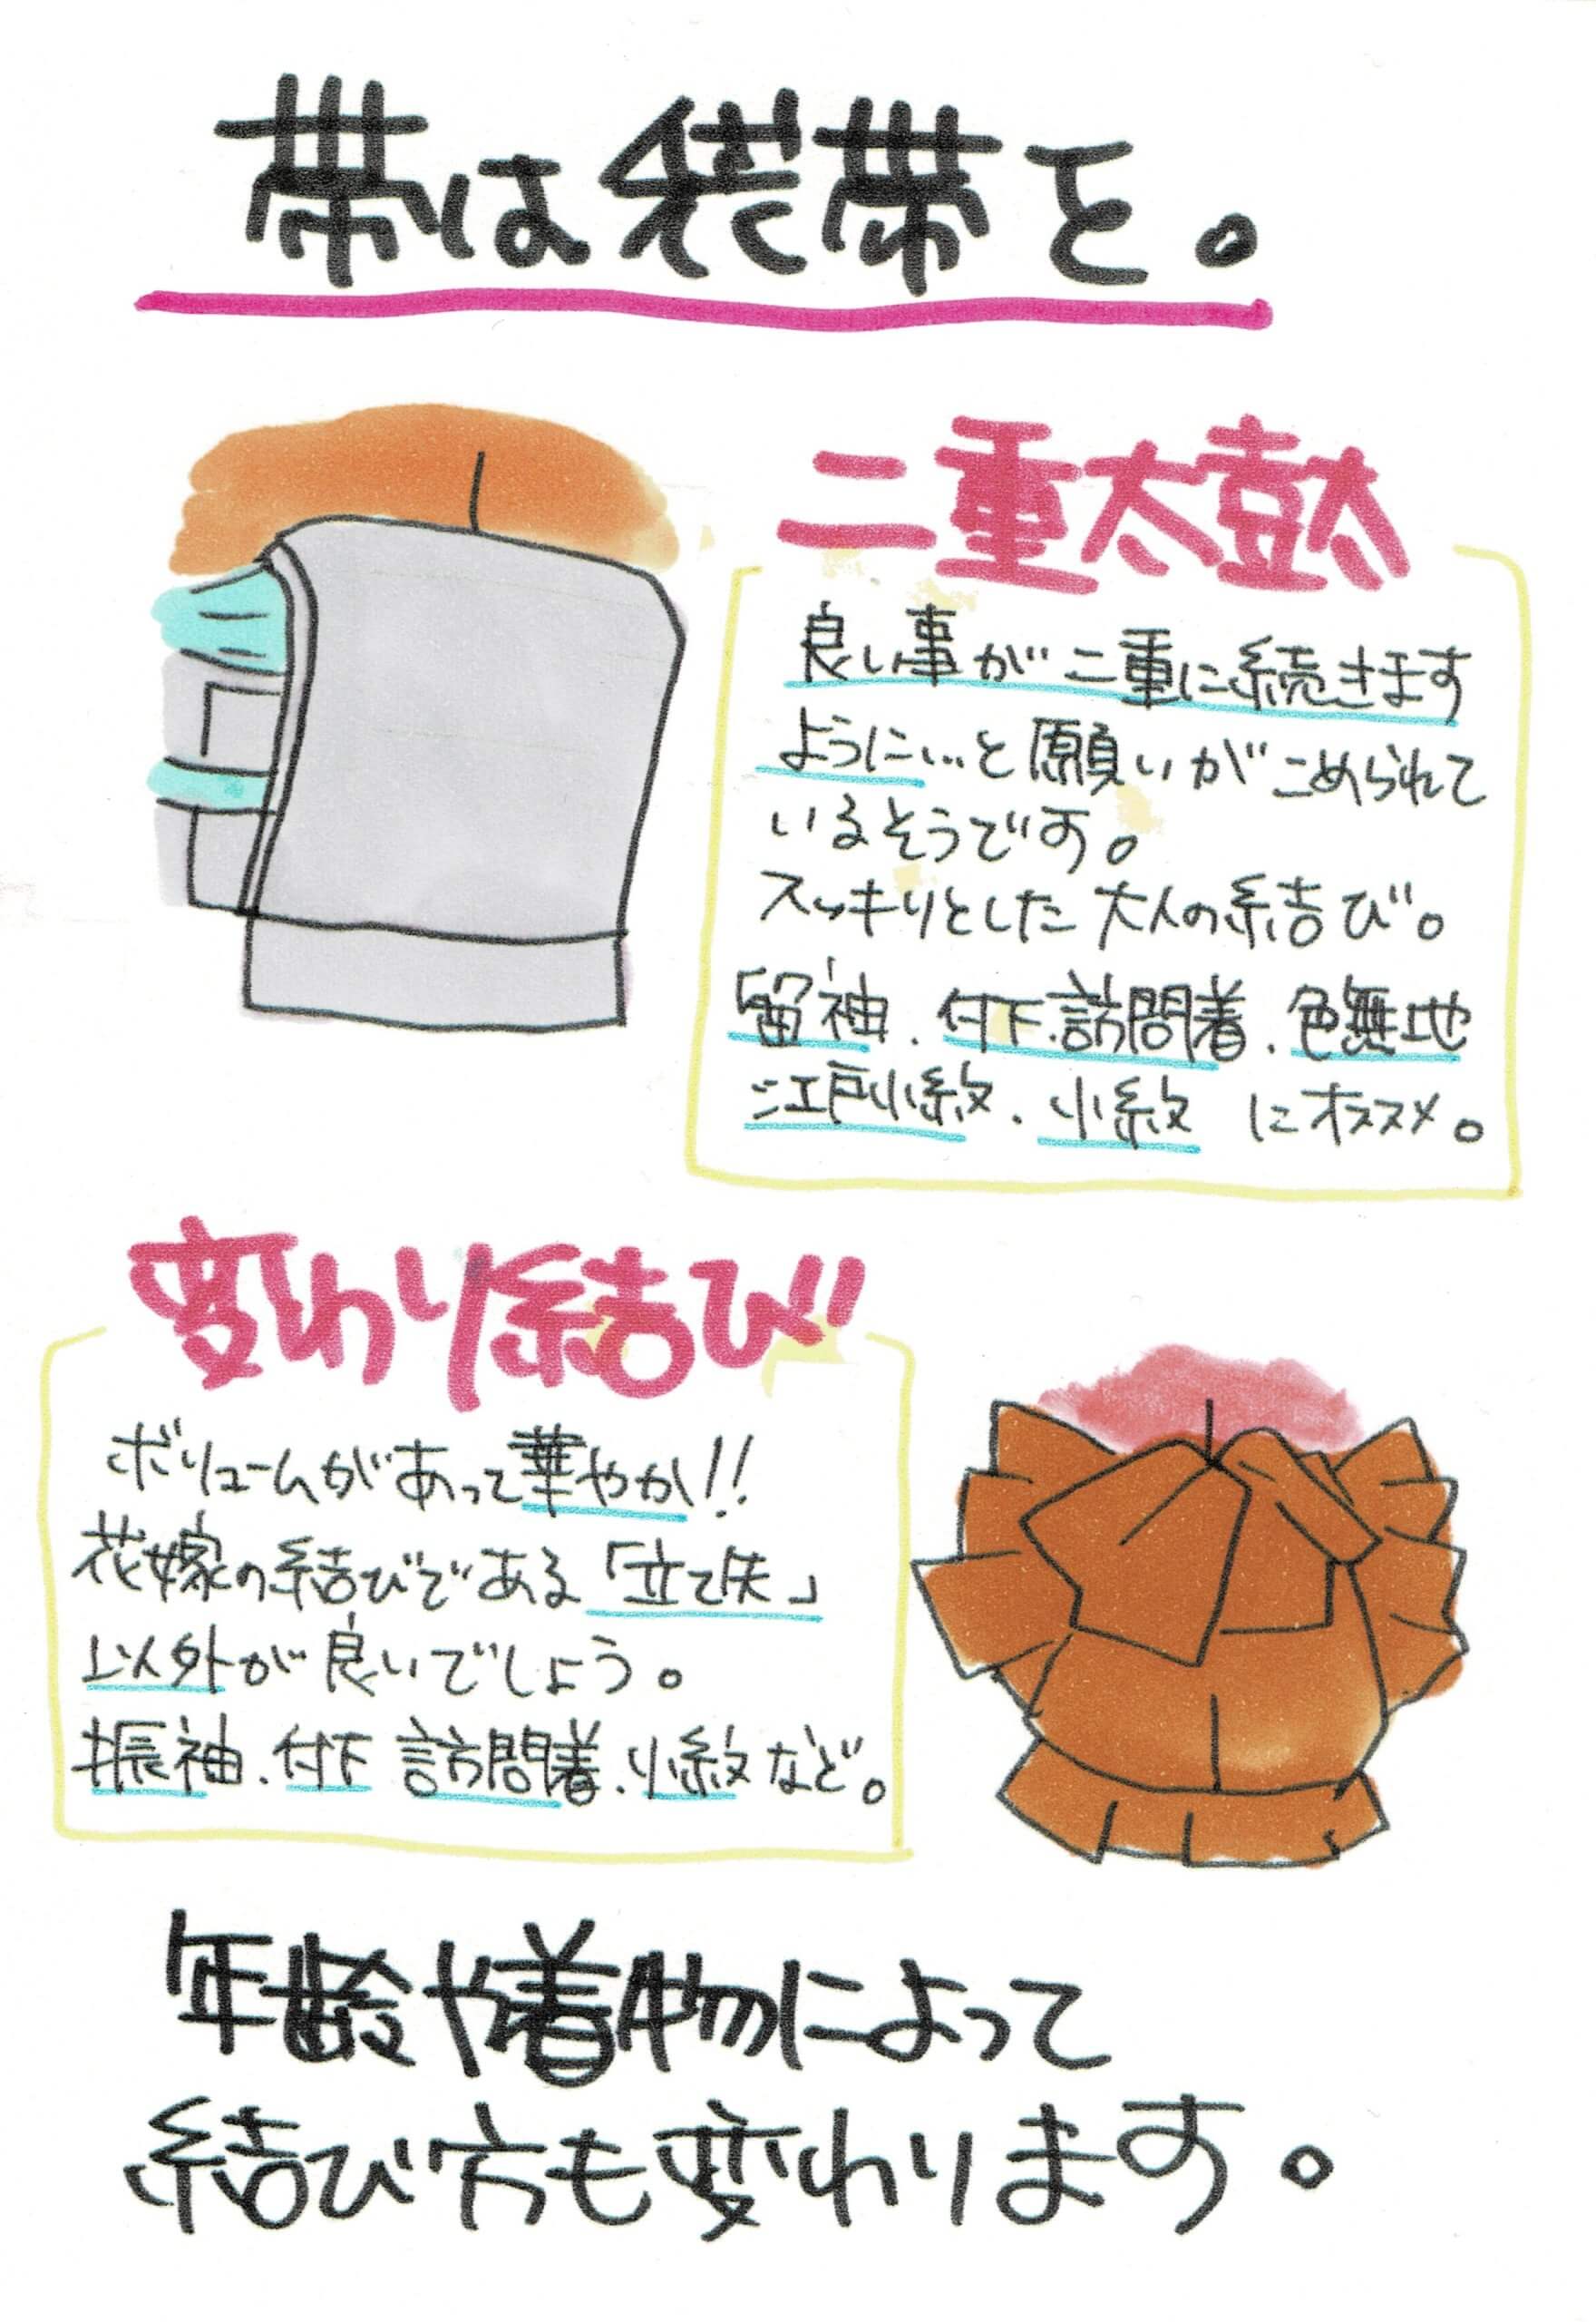 帯は袋帯を。
二重太鼓
良い事が二重に続きます
ように…と願いがこめられて
いるそうです。
スッキリとした大人の結び。
留袖.付下.訪問着.色無地
江戸小紋.小紋 にオススメ。
変わり結び!!
ボリュームがあって華やか!!
花嫁の結びである「立て矢」
以外が良いでしょう。
振袖.付下 訪問着.小紋など。
年齢や着物によって
結び方も変わります。